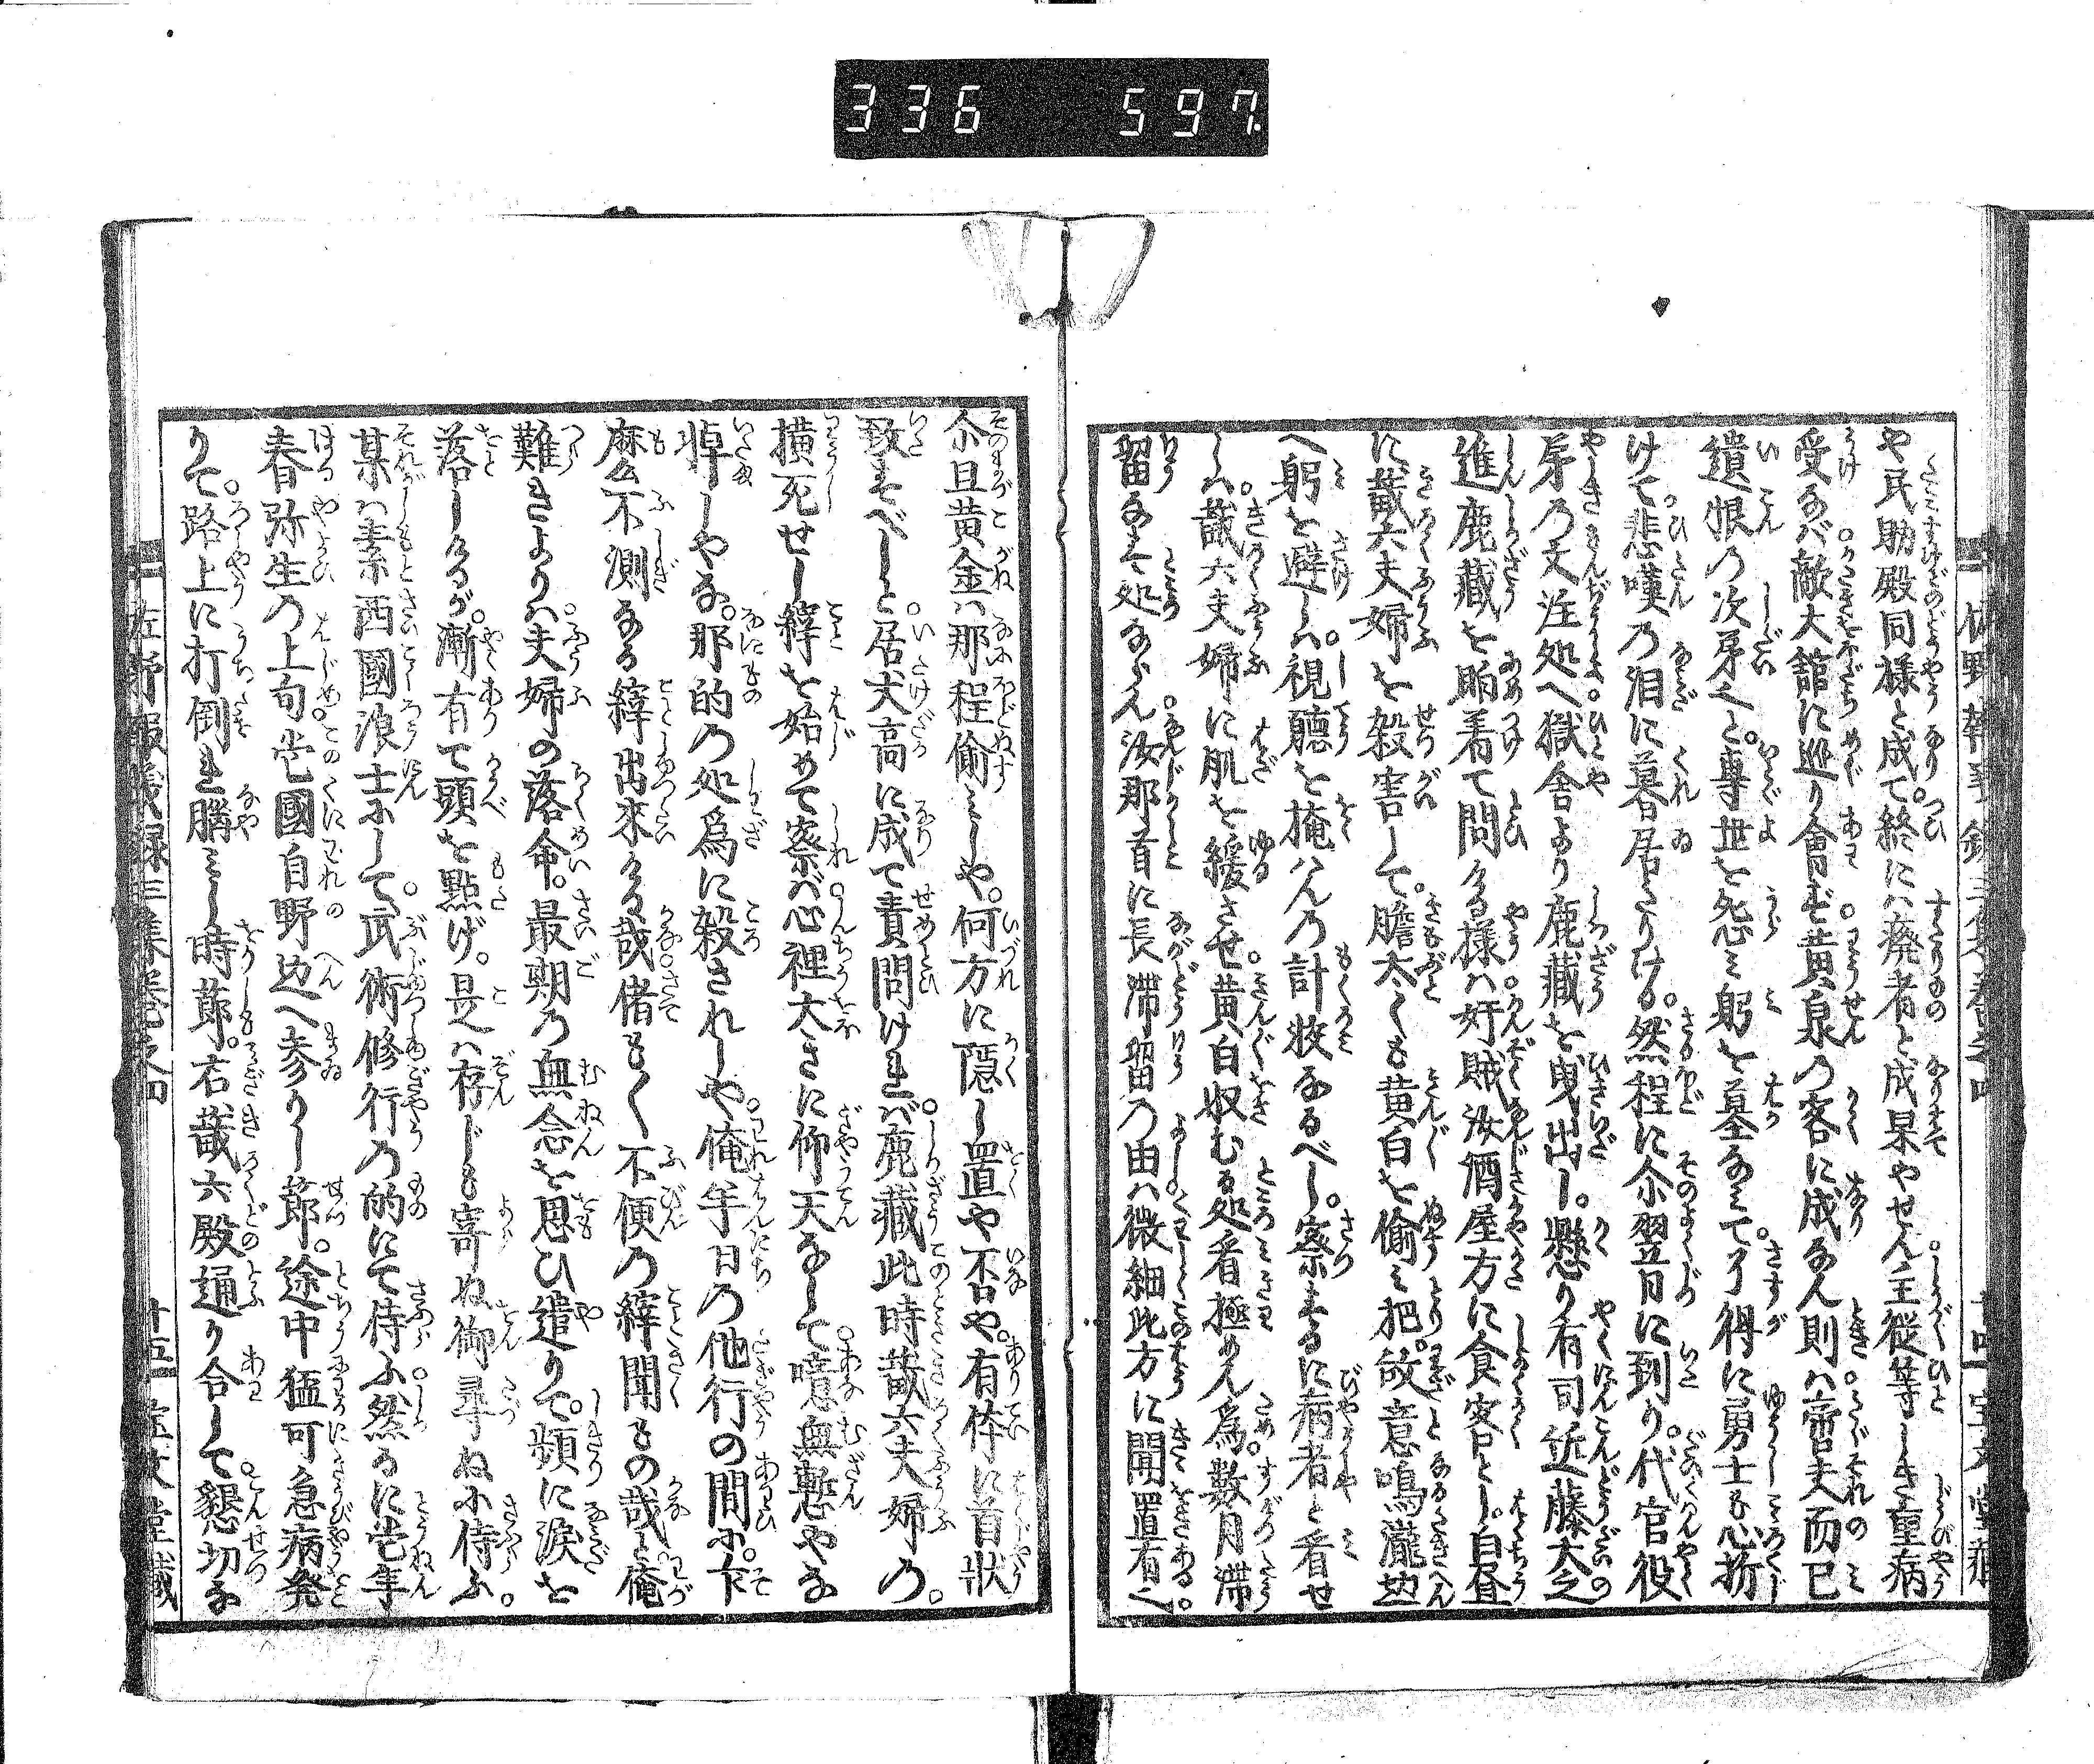 336 597.
や民助殿同様と成て。終には廃者と成果やせん。主従等しき重病
受なば。敵大舘に巡り會ず。黄泉の客に成なん則は。啻夫而已
遺恨の次第之と。專世を怨み躬を墓なみて。了得に勇士も心折
けて。悲嘆の泪に暮居たりける。然程に尒翌月に到り。代官役
所の文注処へ。獄舎より鹿藏を曳出し。懸り有司近藤大之
進鹿藏を眗着て問ける様は。奸賊汝酒屋方に食客とし。白昼
に藏六夫婦を殺害して。膽太くも黄白を偷み把。故意鳴瀧辺
へ躬を避しは。視聽を掩はんの計較なるべし。察するに病者と看せ
しは。藏六夫婦に肌を緩させ。黄白収むる処看極めん為。数月滞
留なす処ならん。汝那首に長滞留の由は。微細此方に聞置有之。
尒且黄金は那程偷みしや。何方に隠し置や不や。有体に首状
致すべしと。居丈高に成て責問ければ。鹿藏此時藏六夫婦の。
横死せし縡を始めて察ば。心裡大きに仰天なして。噫無慙やな
悼しやな。那的の処為に殺されしや。俺半日の他行の間に。卞
麽么不測なる縡出来ける哉。偖もく不便の縡聞もの哉と。俺
難きよりは。夫婦の落命。最期の無念を思ひ遣りて。頻に涙を
落しけるが。漸有て頭を點げ。是は存じも寄ぬ御尋ぬに侍ふ。
某は素西國浪士にして。武術修行の的にて侍ふ。然るに壱年
春弥生の上旬。壱國自野辺へ参りし節。途中猛可急病発
りて。路上に打倒れ腦みし時節。右藏六殿通り合して。懇切な
左野報義録三集巻之四
十五
宝文堂藏